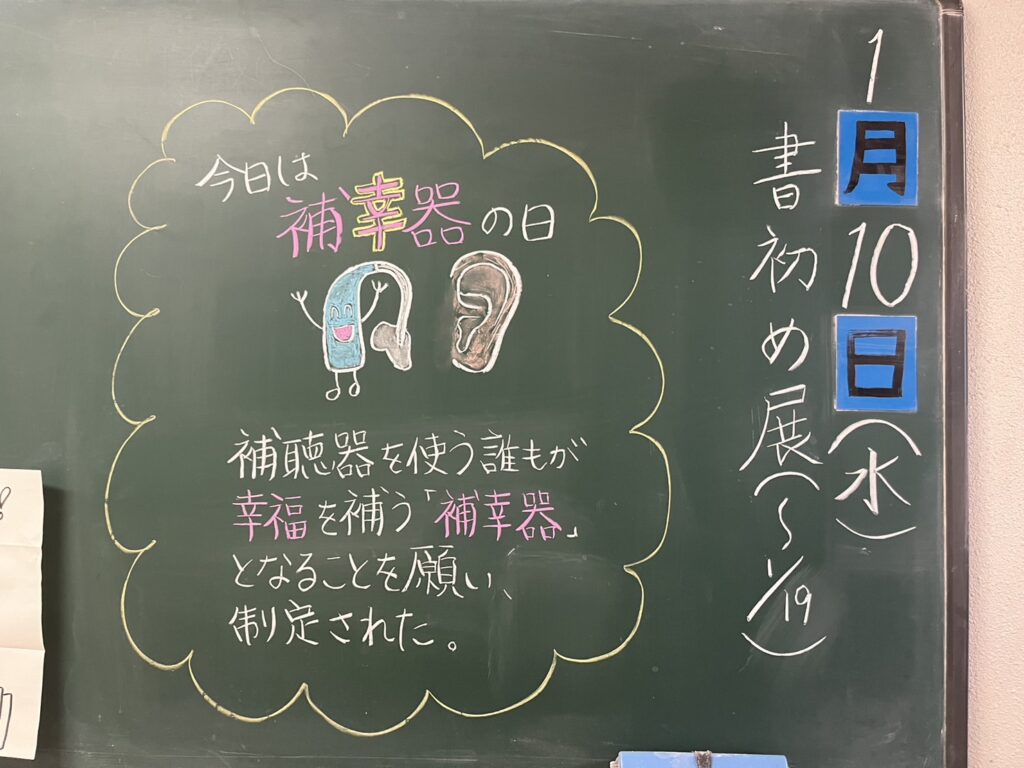 1月10日(水)
書初め展(〜1/19)
今日は
補幸器の日
補聴器を使う誰もが
幸福を補う「補幸器」
となることを願い、
制定された。